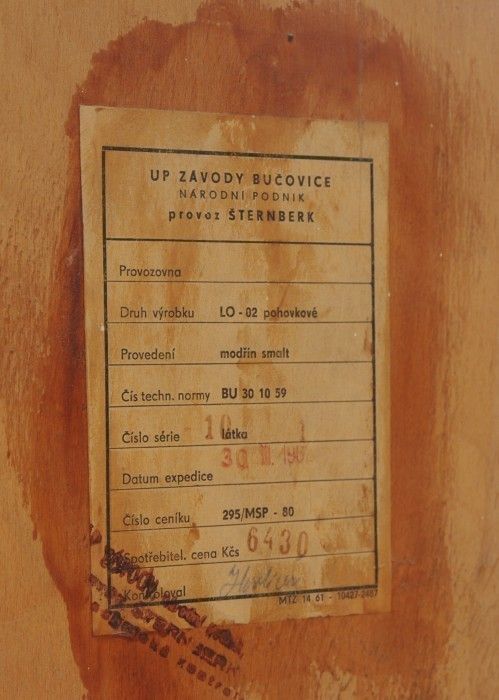 UP ZÁVODY BUČOVICE
NÁRODNÍ PODNIK
provoz ŠTERNBERK
Provozovna
Druh výrobku LO - 02 pohovkové
Provedení modřín smalt
Čís techn. normy BU 30 10 59
Číslo série 10 látka 1
Datum expedice 30. III. 198
Číslo ceníku 295/MSP - 80
Spotřebitel. cena Kčs 6430
Kontroloval
MTZ 14 61 - 10427-2487